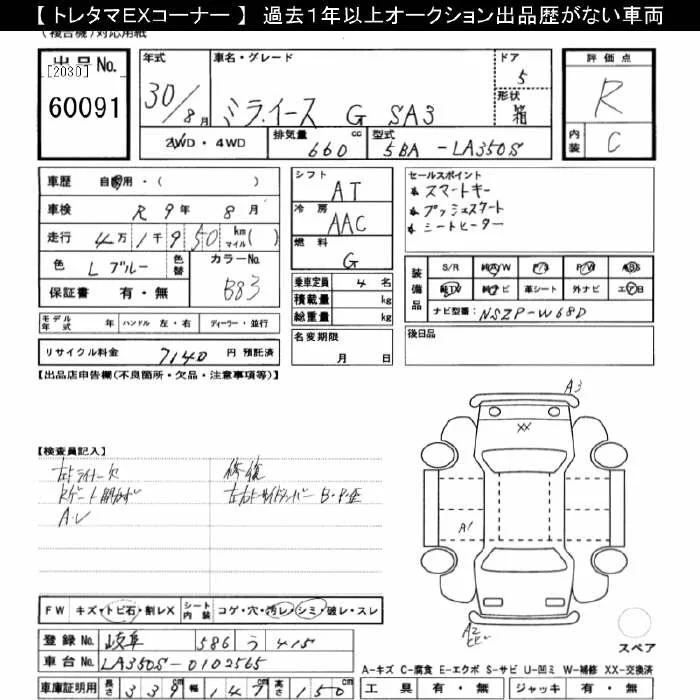 【 トレタマEXコーナー 】 過去１年以上オークション出品歴がない車両
(複合機)対応用紙
出品No.
[2030]
60091
年式 車名・グレード ドア 評価点
30/8月 ミラ.イース G SA3 5
形状 箱
R
2WD・4WD 排気量 cc 型式
660 5BA-LA350S
内装 C
車歴 自家用・( )
車検 R 9年 8月
走行 4万1千9 50 km マイル( )
色 Lブルー 色替 カラーNo. B83
保証書 有・無
シフト AT
冷房 AAC
燃料 G
乗車定員 4名
積載量 kg
総重量 kg
セールスポイント
スマートキー
プッシュスタート
シートヒーター
装備品 S/R 純A/W P/S P/W ABS
純TV 純ナビ 革シート 外ナビ エアB
ナビ型番: NSZP-W68D
モデル年式 年 ハンドル 左・右 ディーラー・並行
名変期限 月 日
後日品
リサイクル料金 7140 円 預託済
【出品店申告欄(不良箇所・欠品・注意事項等)】
A3
XX
A1
A2
【検査員記入】
修復
FW キズ・トビ石・割レX シート内装 コゲ・穴・汚レ・シミ・破レ・スレ
登録No. 岐阜 586 う 415
車台No. LA350S-0102565
車庫証明用 長さ 339cm 幅 147cm 高さ 150cm
スペア
A-キズ C-腐食 E-エクボ S-サビ U-凹ミ W-補修 XX-交換済
工具 有・無 ジャッキ 有・無